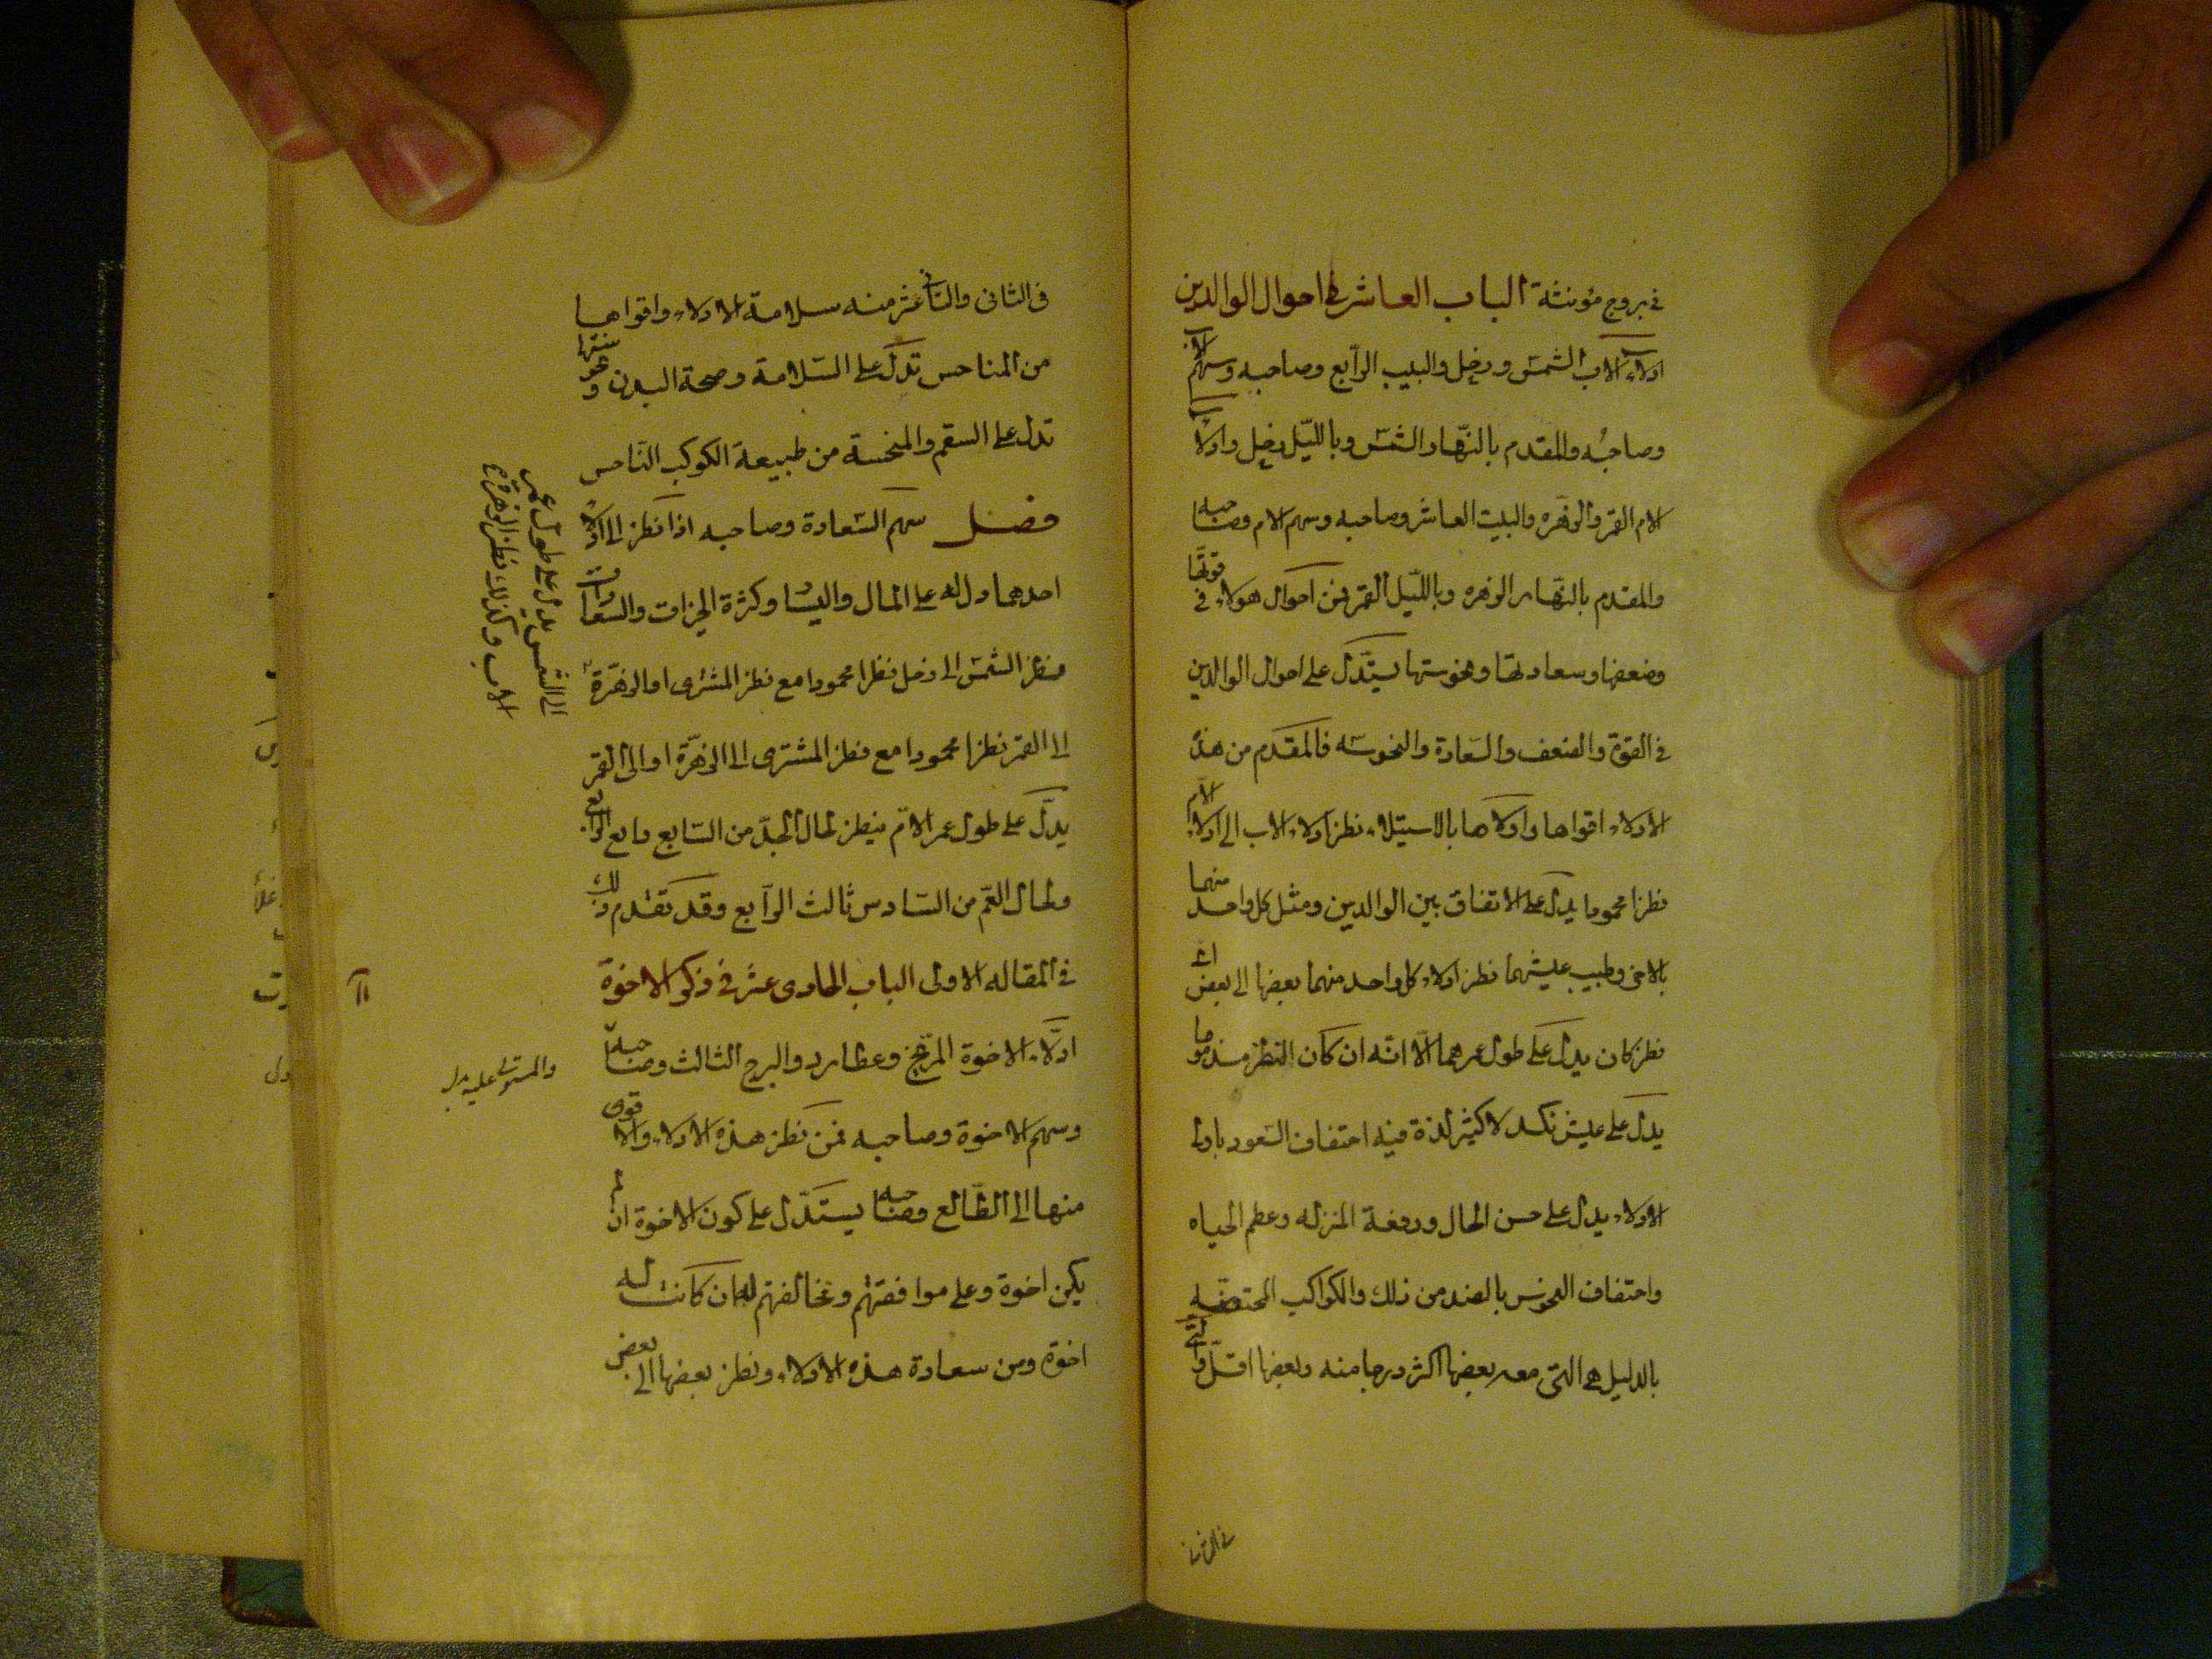 في بروج مؤنثة الباب العاشر في احوال الوالدين
ادلاء الاب الشمس وزحل والبيت الرابع وصاحبه وسهم الاب
وصاحبه والمقدم بالنهار الشمس وبالليل زحل وادلاء
الام القمر والزهره والبيت العاشر وصاحبه وسهم الام وصاحبه
والمقدم بالنهار الزهره وبالليل القمر فمن احوال هولاء في قوتها
وضعفها وسعادتها ونحوستها يستدل على احوال الوالدين
في القوة والضعف والسعادة والنحوسه فالمقدم من هذه
الادلاء اقواها واولاها بالاستيلاء نظر ادلاء الاب الى ادلاء الام
نظرا محمودا يدل على الاتفاق بين الوالدين ومثل كل واحد منهما
بالاخر وطيب عيشهما نظر ادلاء كل واحد منهما بعضها الى بعض اى
نظر كان يدل على طول عمرهما الا انه ان كان النظر مذموما
يدل على عيش نكد لا كثير لذة فيه احتفاف السعود باول
الادلاء يدل على حسن الحال ورفعة المنزله وعظم الحياه
واحتفاف النحوس بالضد من ذلك والكواكب المحتفة
بالدليل هي التى معه بعضها اكثر درجا منه وبعضها اقل والتى
في الثانى
فى الثانى والثانى عشر منه سلامة الادلاء واقواها
من المناحس تدل على السلامة وصحة البدن ونحوستها
تدل على السقم والمنحسة من طبيعة الكوكب الناحس
فصل سهم السعادة وصاحبه اذا نظر الى ادلاء
احدهما دل له على المال واليسار وكثرة الخيرات والسعادة
نظر الشمس الى زحل نظرا محمودا مع نظر المشترى او الزهرة
الى الشمس يدل على طول عمر
الاب وكذلك نظر الزهرة
الى القمر نظرا محمودا مع نظر المشترى الى الزهرة او الى القمر
يدل على طول عمر الام ينظر لحال الجد من السابع رابع الرابع
ولحال العم من السادس ثالث الرابع وقد تقدم ذلك
في المقاله الاولى الباب الحادى عشر في ذكر الاخوة
١١
ادلاء الاخوة المريخ وعطارد والبرج الثالث وصاحبه
والمستولى عليه
وسهم الاخوة وصاحبه فمن نظر هذه الادلاء والاقوى
منها الى الطالع وصاحبه يستدل على كون الاخوة ان لم
يكن اخوة وعلى موافقتهم ومخالفتهم له ان كانت له
اخوة ومن سعادة هذه الادلاء ونظر بعضها الى بعض